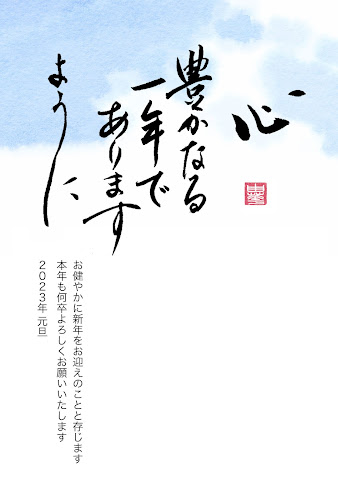 心
豊かなる
一年で
あります
ように
お健やかに新年をお迎えのことと存じます
本年も何卒よろしくお願いいたします
2023年 元旦